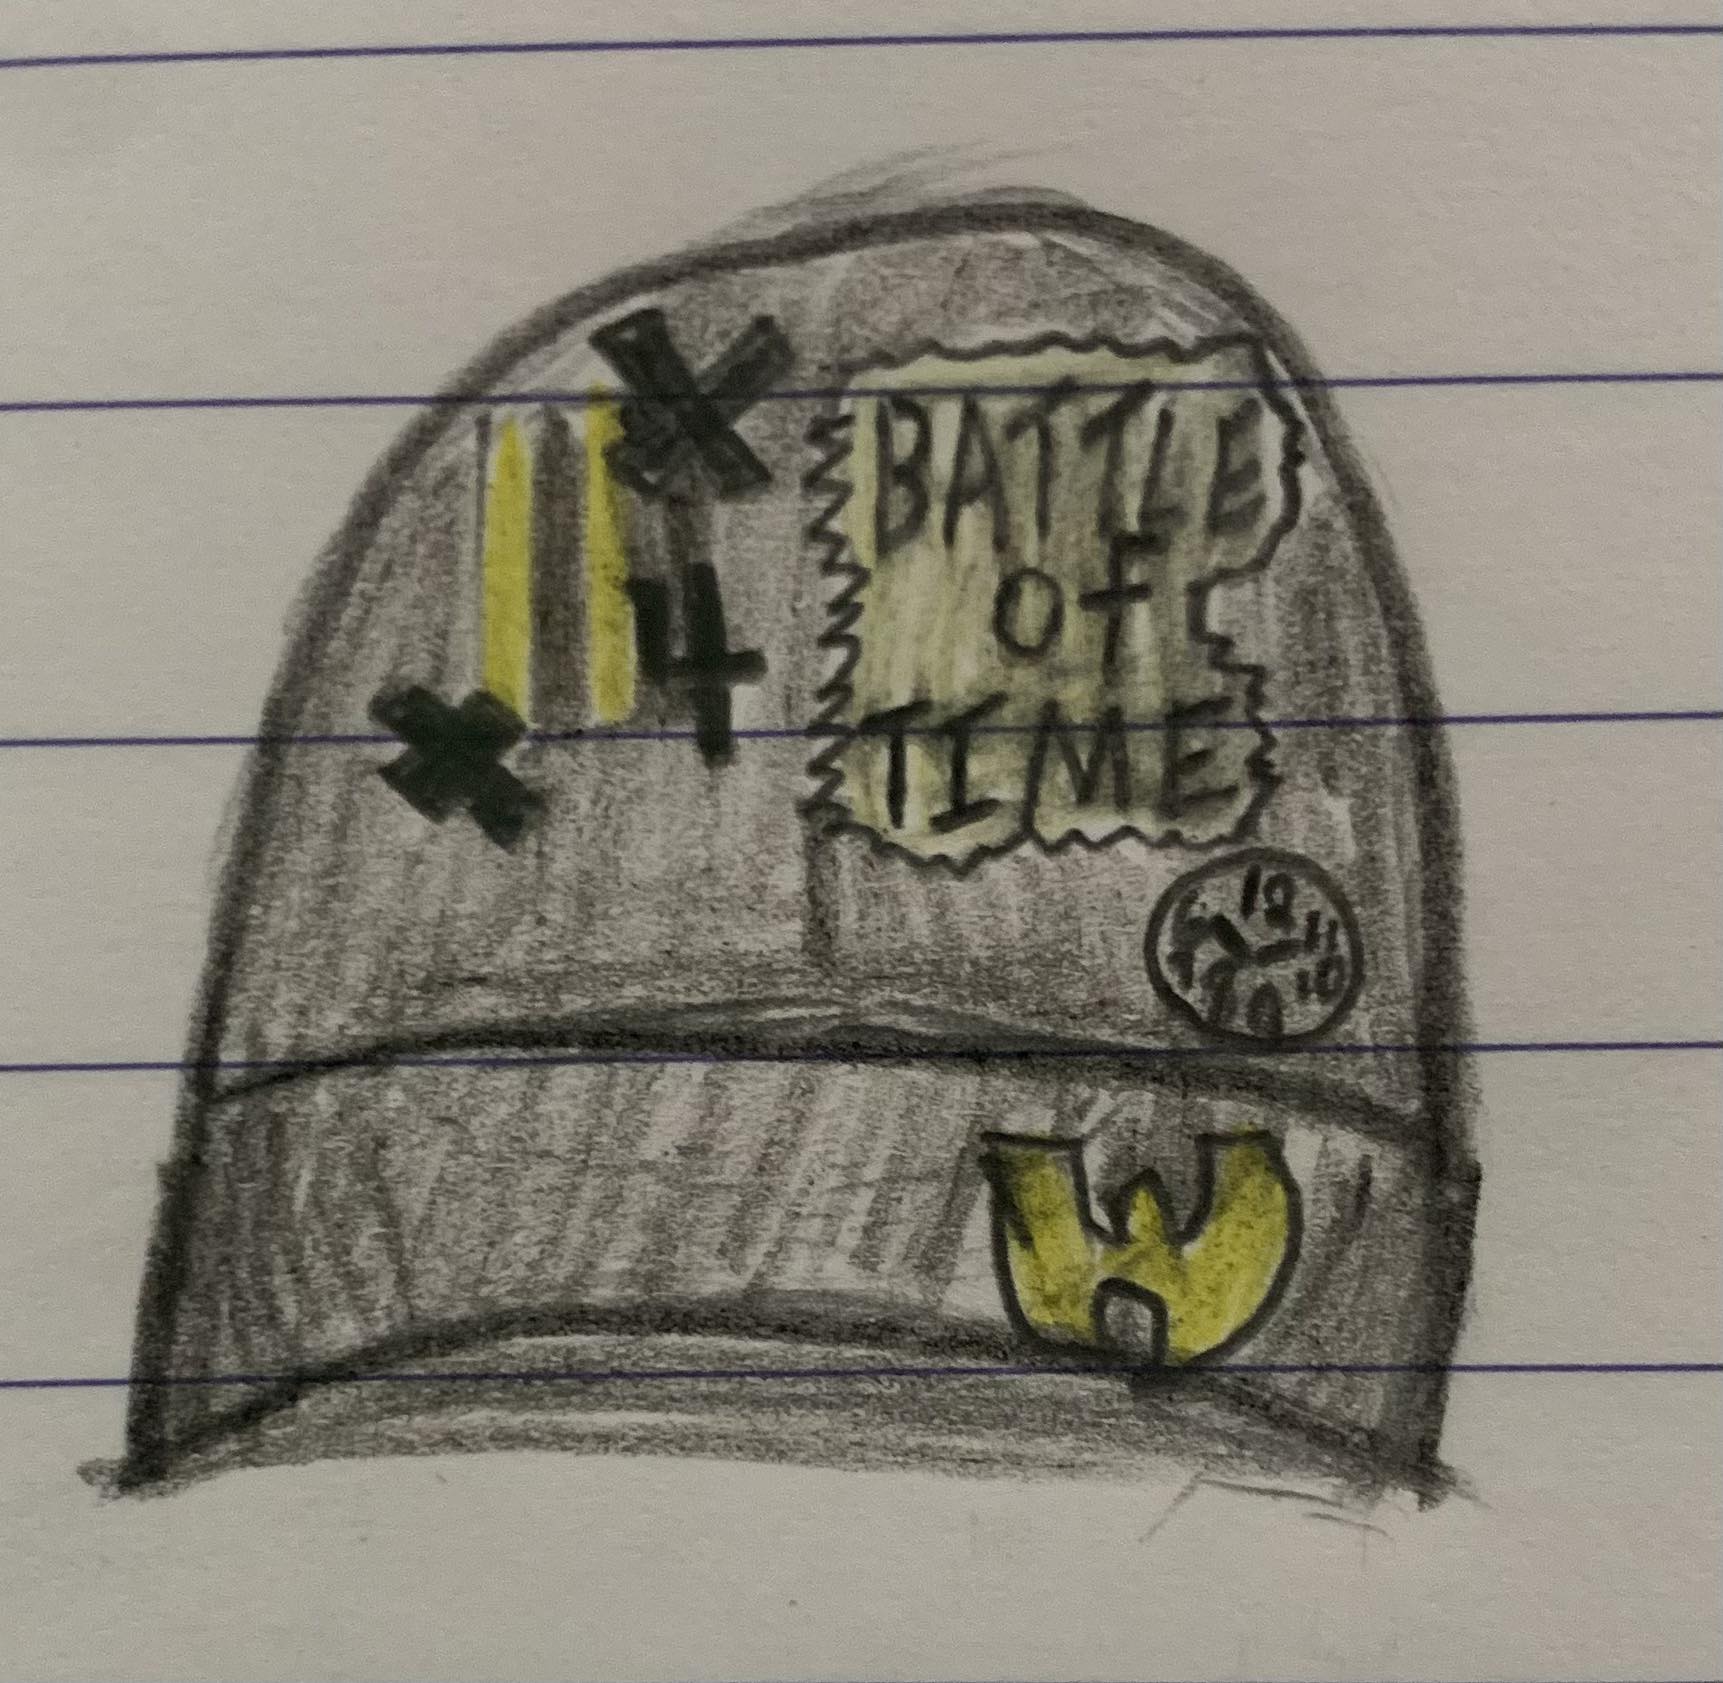 4
BATTLE
of
TIME
12
11
10
W